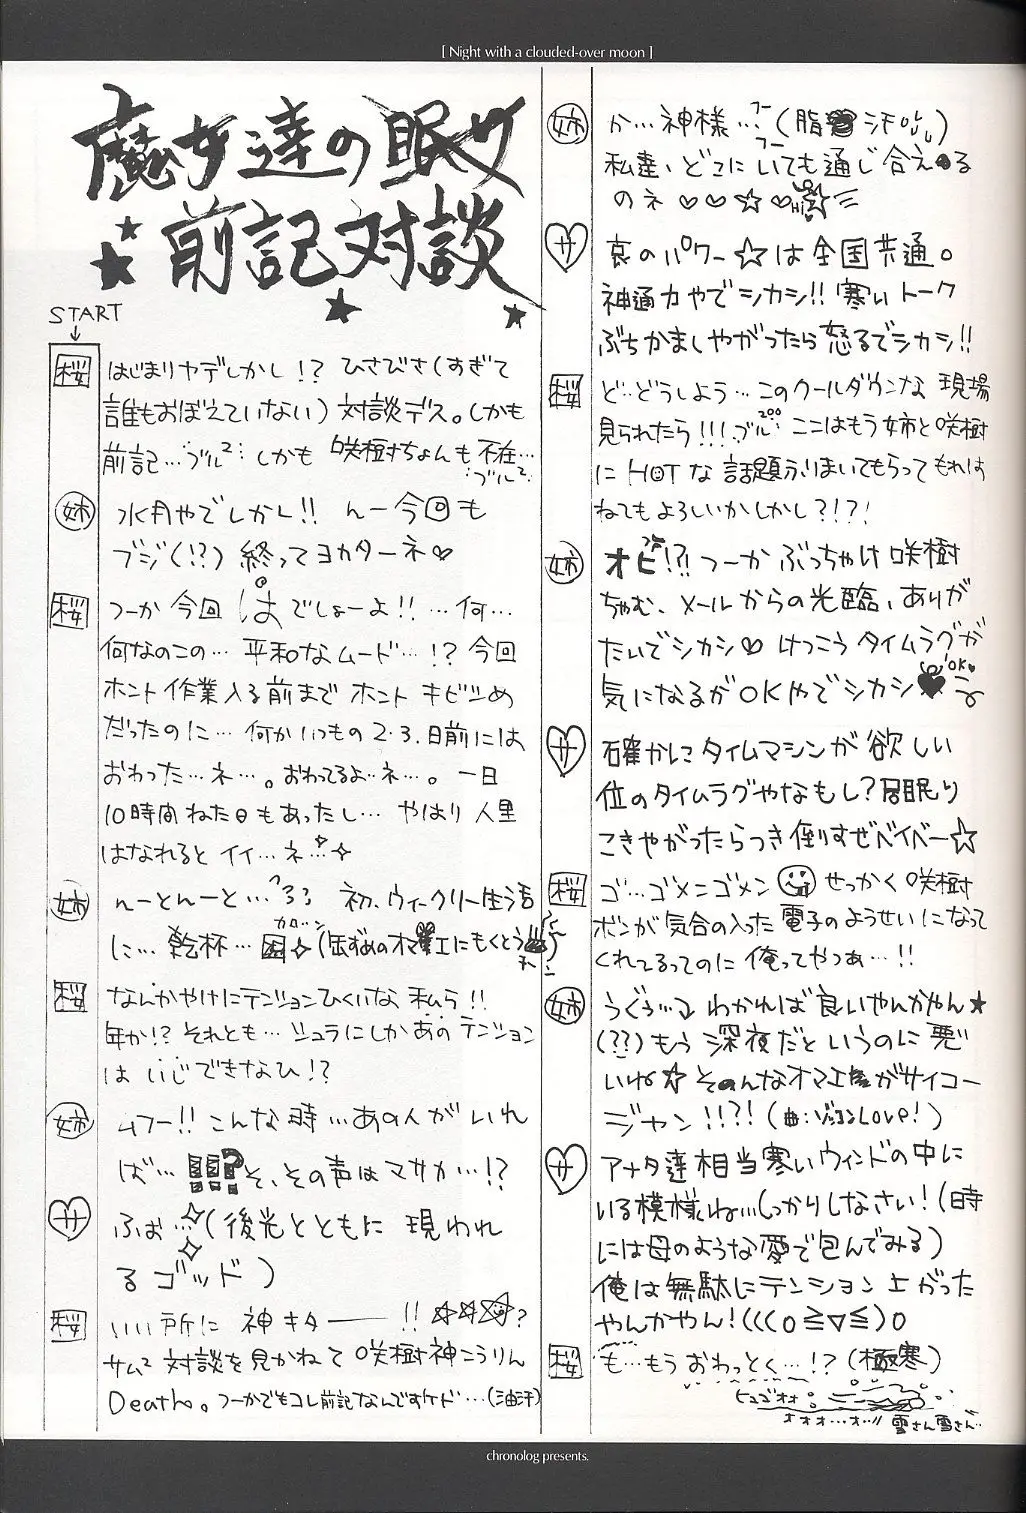 [ Night with a clouded-over moon ]
魔女達の眠り
前記対談
START
桜 はじまりヤデしかし!? ひさびさ(すぎて
誰もおぼえていない) 対談デス。しかも
前記…ブル² しかも 咲樹ちょんも不在…
ブル²
姉 水月やでしかし!! んー今回も
ブジ(!?) 終ってヨカターネ♡
桜 つーか 今回 は でしょーよ!! …何…
何なのこの… 平和なムード…!? 今回
ホント作業入る前まで ホント キビシめ
だったのに… 何かいつもの 2・3.日前には
おわった…ネ…。おわってるよ…ネ…。一日
10時間ねた日もあったし… やはり 人里
はなれると イイ…ネ…
姉 んーとんーと… 初、ウィークリー生活
に… 乾杯…
桜 なんかやけにテンションひくいな 私ら!!
年か!? それとも… シュラにしかあの テンション
は いじできなひ!?
姉 ムフー!! こんな時…あの人がいれ
ば… !!!? そ、その声は マサカ…!?
サ ふぉ…(後光とともに 現われ
るゴッド)
桜 いい所に 神キター――!! ☆☆☆?
サム² 対談を見かねて 咲樹神こうりん
Death。つーかでもコレ前記なんですケド…(油汗)
姉 か…神様…(脂 汗)
私達、どこにいても通じ合えるる
のネ ♡♡☆♡
サ 哀のパワー☆は全国共通。
神通力やでシカシ!! 寒いトーク
ぶちかましやがったら怒るでシカシ!!
桜 ど…どうしよう…このクールダウンな 現場
見られたら!!! ブル²⁰⁰ ここはもう姉と咲樹
に HOT な 話題ふりまいてもらってもれは
ねてもよろしいかしかし?!?!
姉 オビ!?! つーか ぶっちゃけ 咲樹
ちゃむ、メールからの光臨、ありが
たいでシカシ♡ けっこう タイムラグが
気になるが OKやでシカシ♥ OK
サ 確かにタイムマシンが欲しい
位のタイムラグやなもし?居眠り
こきやがったらつき倒すぜベイベー☆
桜 ゴ…ゴメンゴメン せっかく 咲樹
ボンが気合の入った 電子のようせいになって
くれてるってのに 俺ってやつぁ…!!
姉 うぐぅ… わかれば良いやんかやん★
(??) もう 深夜だというのに 悪
いね☆ そのんなオマエがサイコー
ジャン!!?! (曲:ゾッコンLove!)
サ アナタ達相当寒いウィンドの中に
いる模様ね…しっかりしなさい!(時
には母のような愛で包んでみる)
俺は無駄にテンション上がった
やんかやん!(((o≧▽≦)o
桜 も…もう おわっとく…!? (極寒)
ヒュゴオォ
オオオ…オ…!! 雪さん雪さん…
chronolog presents.